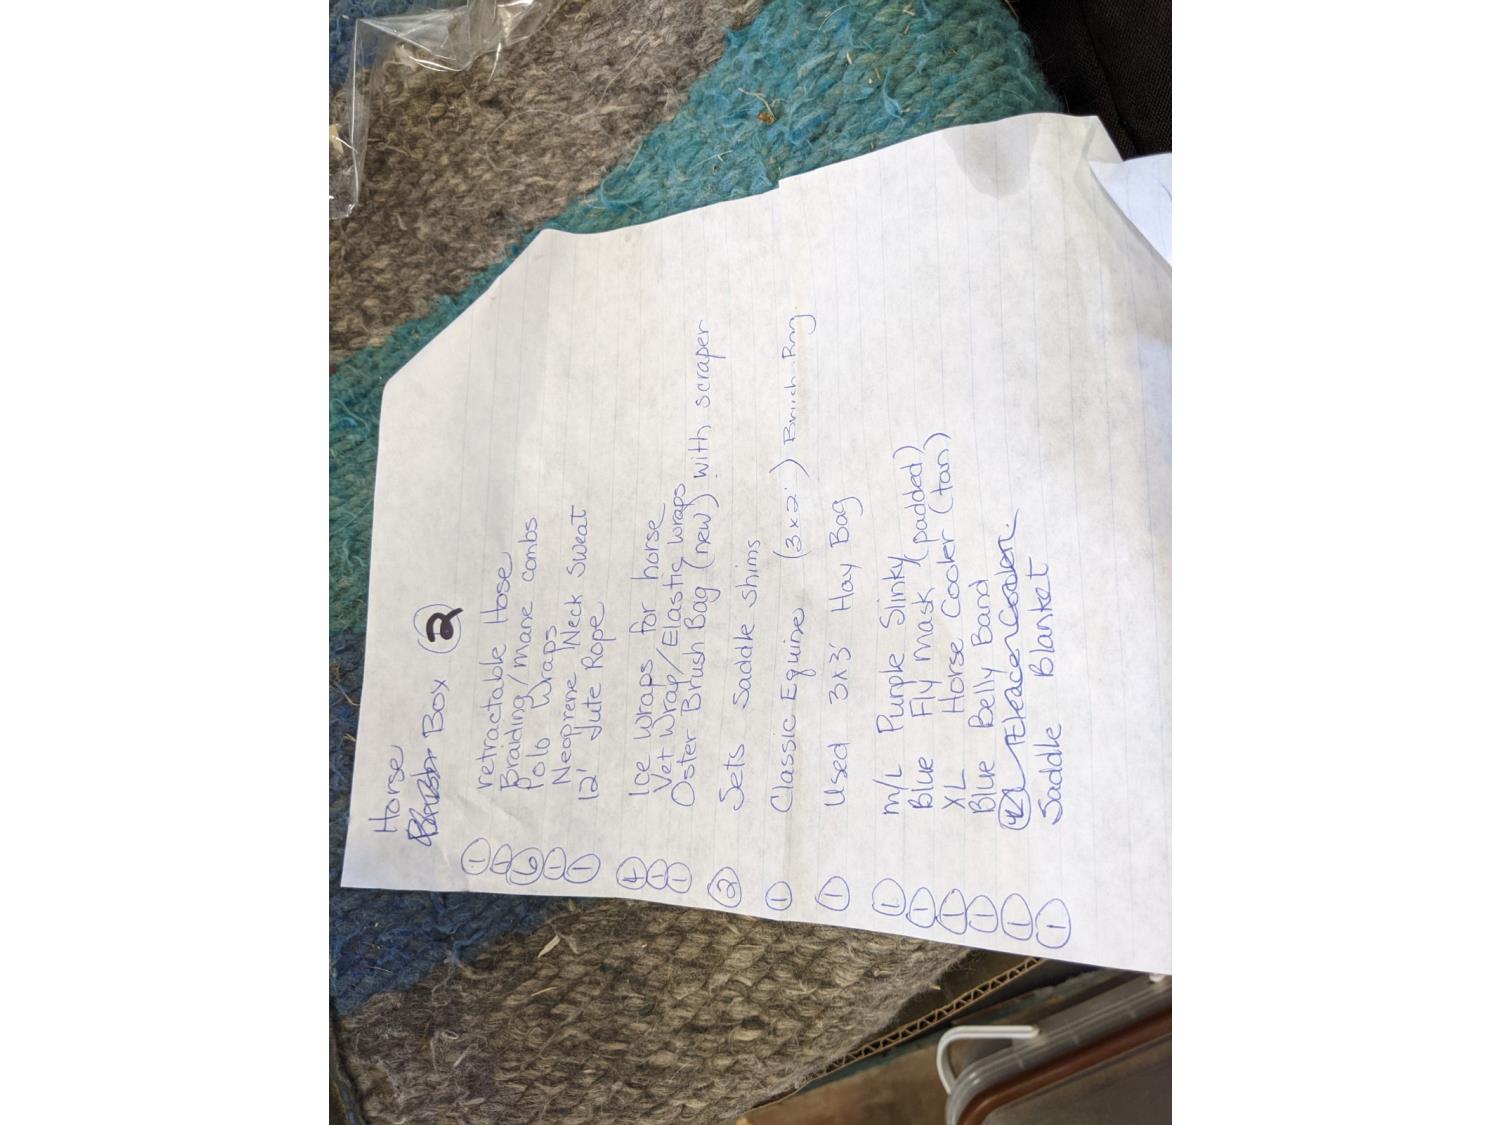 Horse
Box 2
1 retractable Hose
1 Braiding/mane combs
6 Polo Wraps
1 Neoprene Neck Sweat
1 12' Jute Rope
4 Ice Wraps for horse
1 Vet Wrap/Elastic Wraps
1 Oster Brush Bag (new) with scraper
2 Sets saddle shims
1 Classic Equine (3x2')
1 Used 3x3' Hay Bag
1 M/L Purple Slinky
1 Blue Fly mask (padded)
1 XL Horse Cooler (tan)
1 Blue Belly Band
1
1 Saddle Blanket